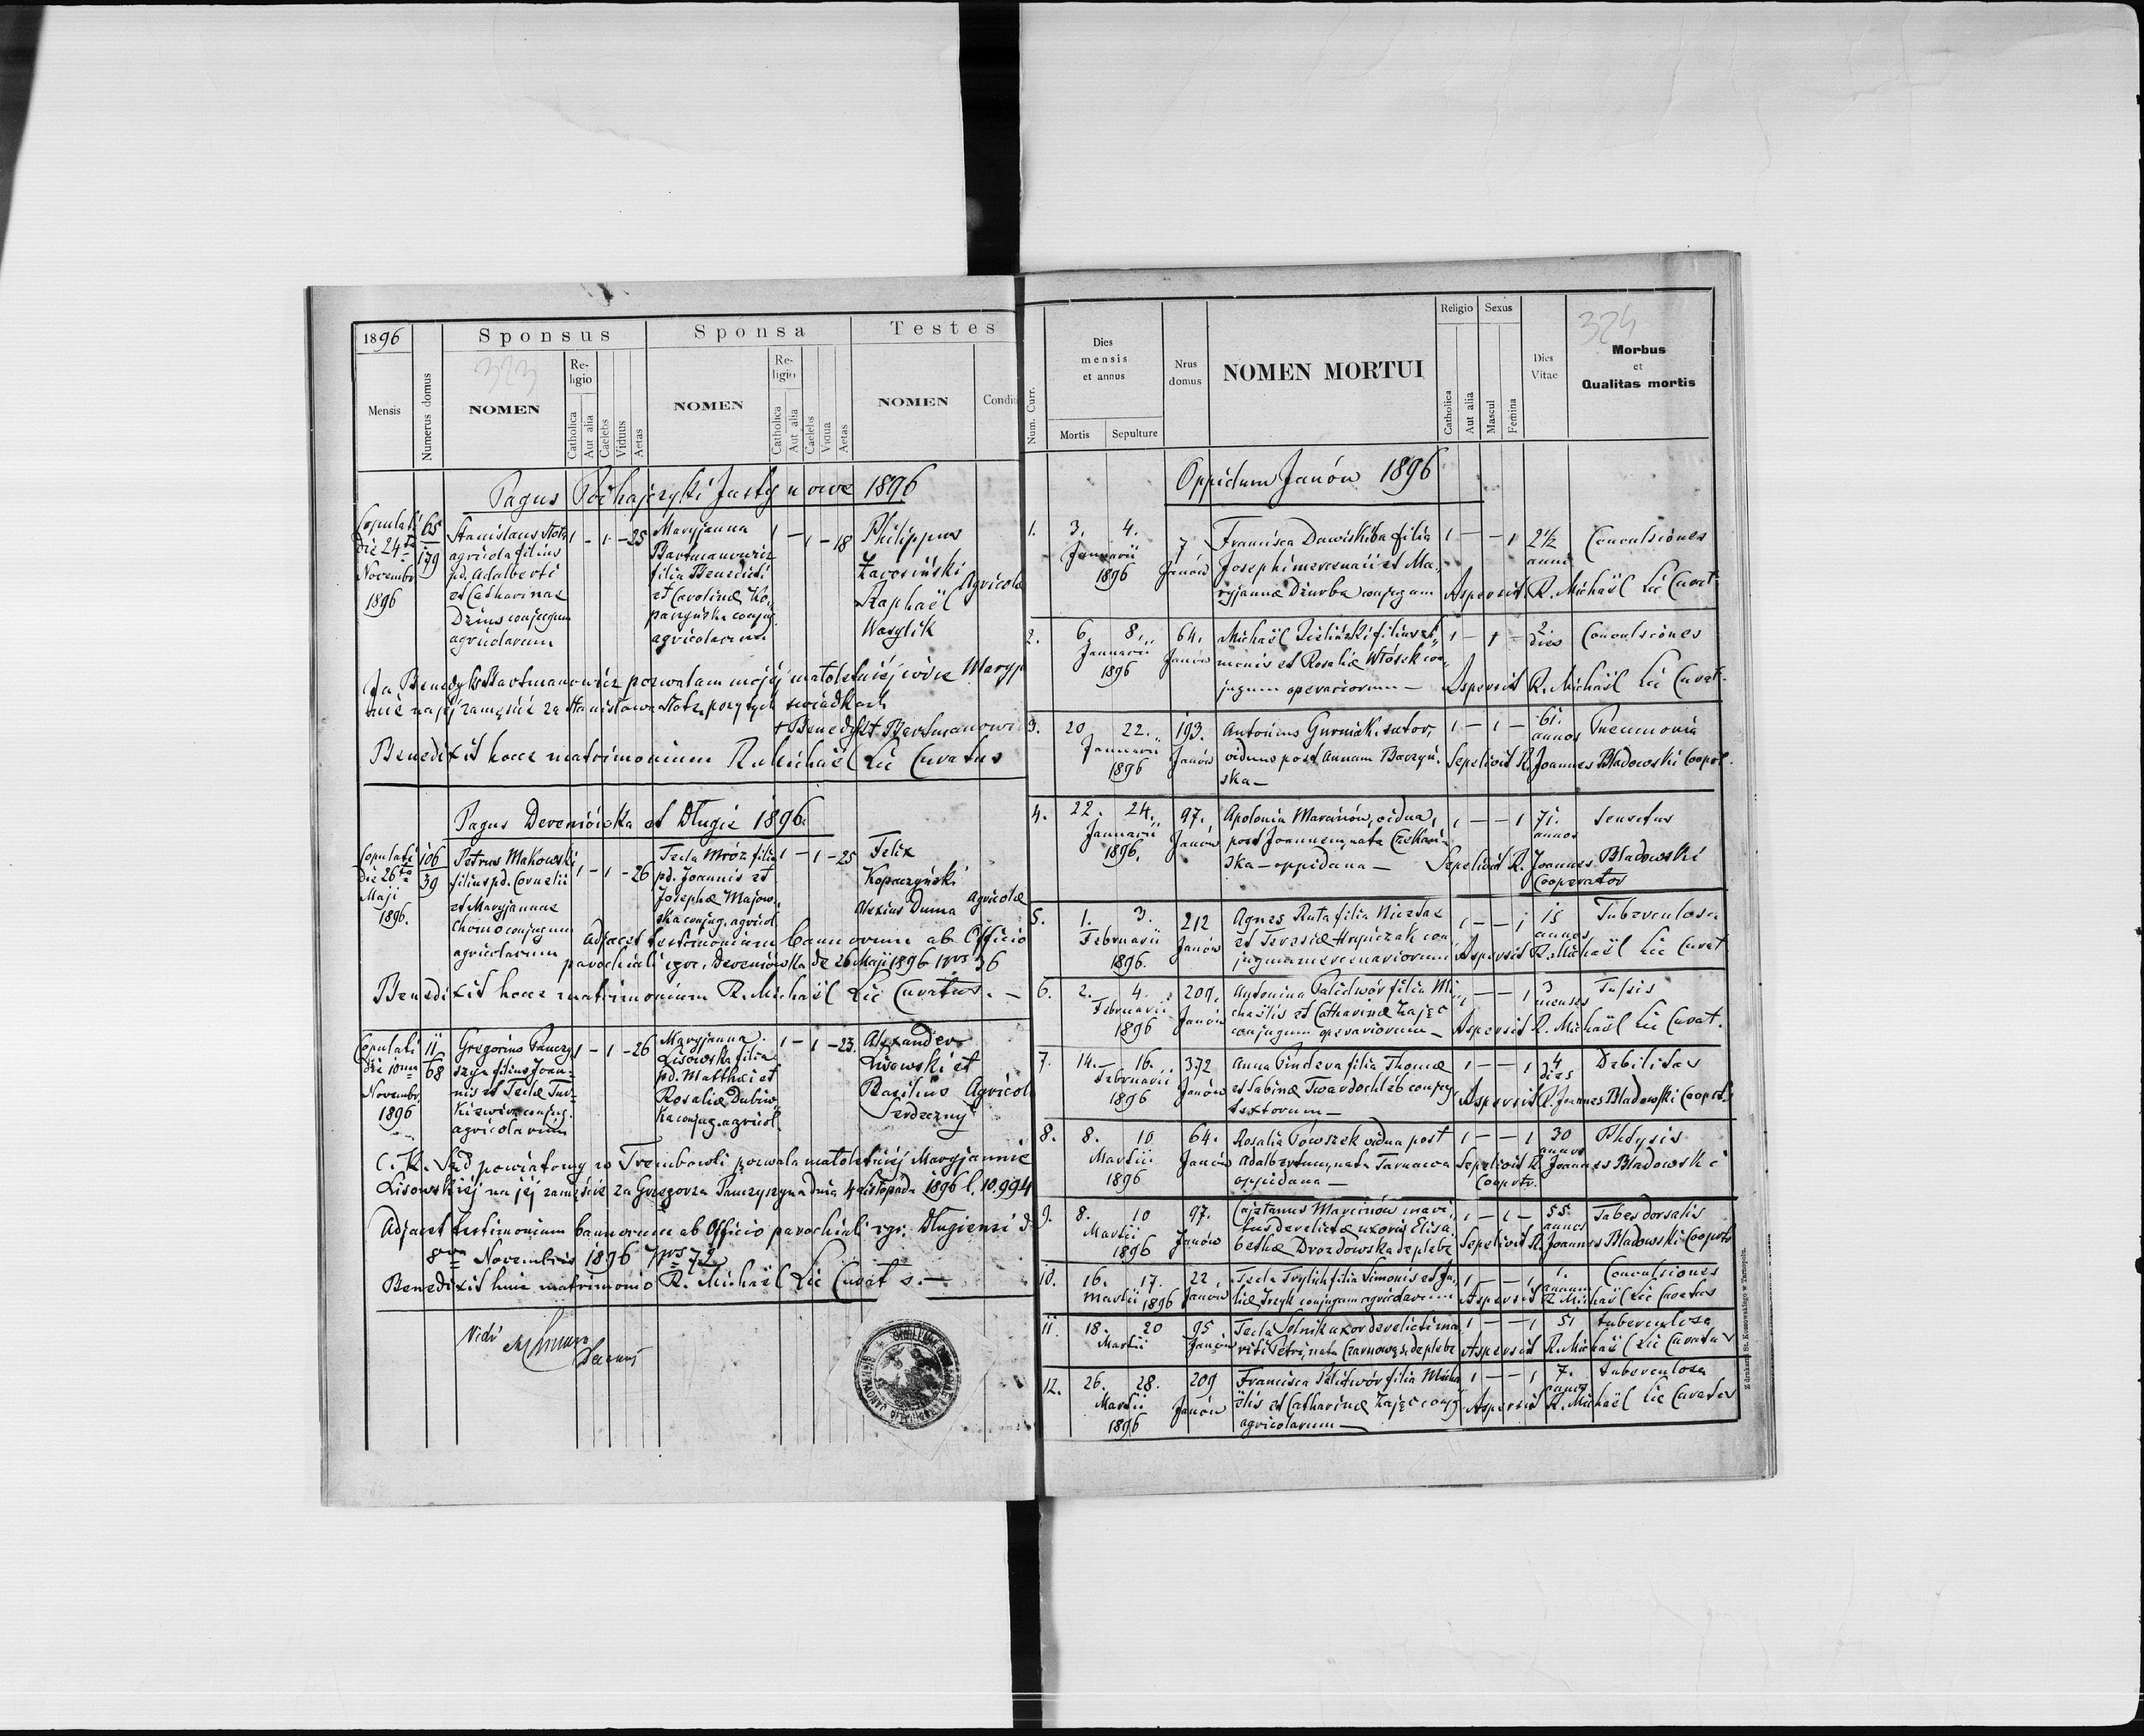 1896
Sponsus
Sponsa
Testes
Mensis
Numerus domus
323
NOMEN
Religio
Catholica
Aut alia
Caelebs
Viduus
Aetas
NOMEN
Religio
Catholica
Aut alia
Caelebs
Vidua
Aetas
NOMEN
Pagus Podhajczyki Justynowe 1896
Copulati
die 24ta
Novembr
1896
65
179
Stanislaus
agricola filius
pd. Adalberti
et Catharinae
Dzius conjugum
agricolarum
1 - 1 - 25
Maryjanna
Bartmanowicz
filia Benedicti
et Carolinae Ko„
paczyńska conjug
agricolarum
1 - 1 - 18
Philippus
Zarosiński
Raphaël
Wasylik
Agricolae
Ja Benedykt Bartmanowicz pozwalam mojéj małoletniéj córce Maryj
annie na jéj zamęście za Stanisława przy tych świadkach
+ Benedykt Bartmanowi
Benedixit hocce matrimonium R. Michaël Lic Curatus
Pagus Dereniówka et Długie 1896.
Copulati
die 26ta
Maji
1896.
106
39
Petrus Makowski
filius pd. Cornelii
et Maryjannae
Chomo conjugum
agricolarum
1 - 1 - 26
Tecla Mróz filia
pd. Joannis et
Josephae Majow„
ska conjug. agricol
1 - 1 - 25
Felix
Kopaczyński
Alexius Duma
Agricolae
Adjacet testimonium bannorum ab Officio
parochiali rgr. Dereniówka de 26 Maji 1896 Nrs 36
Benedixit hocce matrimonium R. Michaël Lic Curatus. —
Copulati
die 10ma
Novembr.
1896
11
68
Gregorius Panczy
szyn filius Joan„
nis et Teclae
conjug.
agricolarum
1 - 1 - 26
Maryjanna
Lisowska filia
pd. Matthaei et
Rosaliae Dubiw
ka conjug. agricol.
1 - 1 - 23.
Alexander
Lisewski et
Basilius
Serdeczny
Agricol
C. K. Sąd powiatowy w Trembowli pozwala małoletniéj Maryjannie
Lisowskiéj na jéj zamęście za Grzegorza Panczyszyna dnia 4 Listopada 1896 l. 10.994
Adjacet testimonium bannorum ab Officio parochiali rgr. Długiensi d
8va Novembris 1896 Nrs 72
Benedixit huic matrimonio R. Michaël Lic Curat s. —
Vidi
Decanus
Num. Curr.
Dies
mensis
et annus
Mortis
Sepulture
Nrus
domus
NOMEN MORTUI
Religio
Catholica
Aut alia
Sexus
Mascul
Femina
Dies
Vitae
324
Morbus
et
Qualitas mortis
Oppidum Janów 1896
1. 3. 4. 7 Francisca filia 1 — — 1 2½ Convulsiones
Januarii Janów Josephi mercenarii et Ma„ anni
1896 ryjannae Dziurba conjugum Aspersit R. Michaël Lic Curat.
2. 6. 8. 64. Michaël Zieliński filius Si„ 1 — 1 — 2 Convulsiones
Januarii Janów monis et Rosaliae Włósek con„ dies
1896 jugum operariorum — Aspersit R. Michaël Lic Curat.
3. 20 22. 193. Antonius Gurniak, sutor, 1 — 1 — 61. Pneumonia
Januarii Janów viduus post Annam Baczyń„ annos
1896 ska — Sepelivit R. Joannes Bladowski Coopr.
4. 22. 24. 97. Apolonia Marcinów, vidua, 1 — — 1 71. Senectus
Januarii Janów post Joannem, nata annos
1896. ska — oppidana — Sepelivit R. Joannes Bladowski
Cooperator
5. 1. 3. 212 Agnes Ruta filia Nicolae 1 — — 1 15 Tuberculosa
Februarii Janów et Teresiae Hryńczak con annos
1896. jugum mercenariorum Aspersit R. Michaël Lic Curat
6. 2. 4. 209. Antonina Palidwór filia Mi„ 1 — — 1 3 Tussis
Februarii Janów chaëlis et Catharinae Zając menses
1896 conjugum operariorum — Aspersit R. Michaël Lic Curat.
7. 14. — 16. 372 Anna Pindera filia Thomae 1 — — 1 4 Debilitas
Februarii Janów et Sabinae Twardochléb conjug dies
1896 textorum — Aspersit R. Joannes Bladowski Cooprtr
8. 8. 10 64. Rosalia vidua post 1 — — 1 30 Phtysis
Martii Janów Adalbertum, nata Tarnawa annos
1896 oppidana — Sepelivit R. Joannes Bladowski
Cooprtr.
9. 8. 10 97. Cajetanus Marcinów mari„ 1 — 1 — 55 Tabes dorsalis
Martii Janów tus derelictae uxoris Elisa„ annos
1896 bethae Drozdowska de plebe Sepelivit R. Joannes Bladowski Cooprtr
10. 16. 17. 22. Tecla Trylich filia Simonis et Ju„ 1 — — 1 1. Convulsiones
Martii 1896 Janów liae conjugum agricolarum annum
Aspersit R. Michaël Lic Curatus
11. 18. 20 95 Tecla uxor derelicti ma„ 1 — — 1 51 tuberculosa
Martii Janów riti Petri, nata de plebe Aspersit R. Michaël Lic Curatus
12. 26. 28. 209 Francisca Palidwór filia Micha 1 — — 1 7. tuberculosa
Martii Janów ëlis et Catharinae Zając conjg annos
1896 agricolarum — Aspersit R. Michaël Lic Curatus
Z drukarni St. Kossowskiego w Tarnopolu.